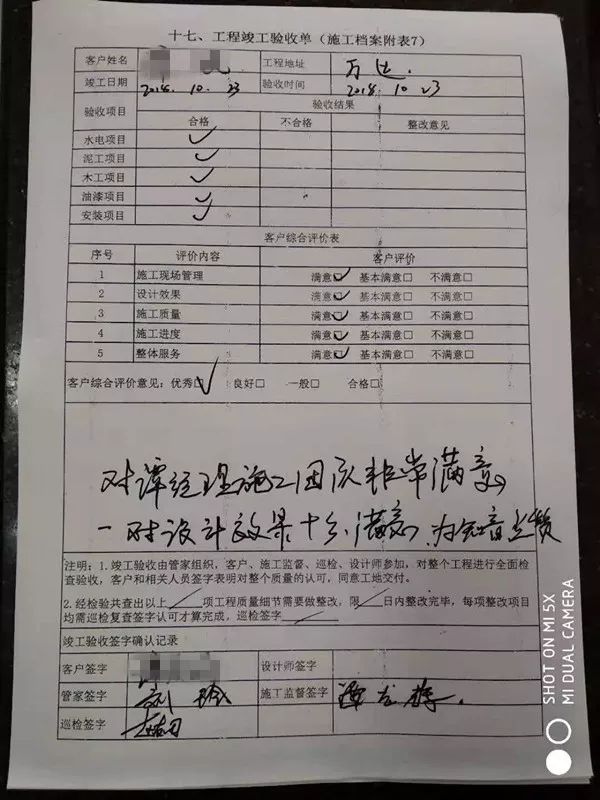 十七、工程竣工验收单（施工档案附表7）
客户姓名 工程地址 万达
竣工日期 2018.10.23 验收时间 2018.10 23
验收项目 验收结果
合格 不合格 整改意见
水电项目 ✓
泥工项目 ✓
木工项目 ✓
油漆项目 ✓
安装项目 ✓
客户综合评价表
序号 评价内容 客户评价
1 施工现场管理 满意☑ 基本满意□ 不满意□
2 设计效果 满意☑ 基本满意□ 不满意□
3 施工质量 满意☑ 基本满意□ 不满意□
4 施工进度 满意☑ 基本满意□ 不满意□
5 整体服务 满意☑ 基本满意□ 不满意□
客户综合评价意见：优秀☑ 良好□ 一般□ 合格□
对谭经理施工团队非常满意
对设计效果十分满意 为知音点赞
注明：1.竣工验收由管家组织，客户、施工监督、巡检、设计师参加，对整个工程进行全面检
查验收，客户和相关人员签字表明对整个质量的认可，同意工地交付。
2.经检验共查出以上 项工程质量细节需要做整改，限 日内整改完毕，每项整改项目
均需巡检复查签字认可才算完成，巡检签字
竣工验收签字确认记录
客户签字 设计师签字
管家签字 施工监督签字
巡检签字
SHOT ON MI 5X
MI DUAL CAMERA